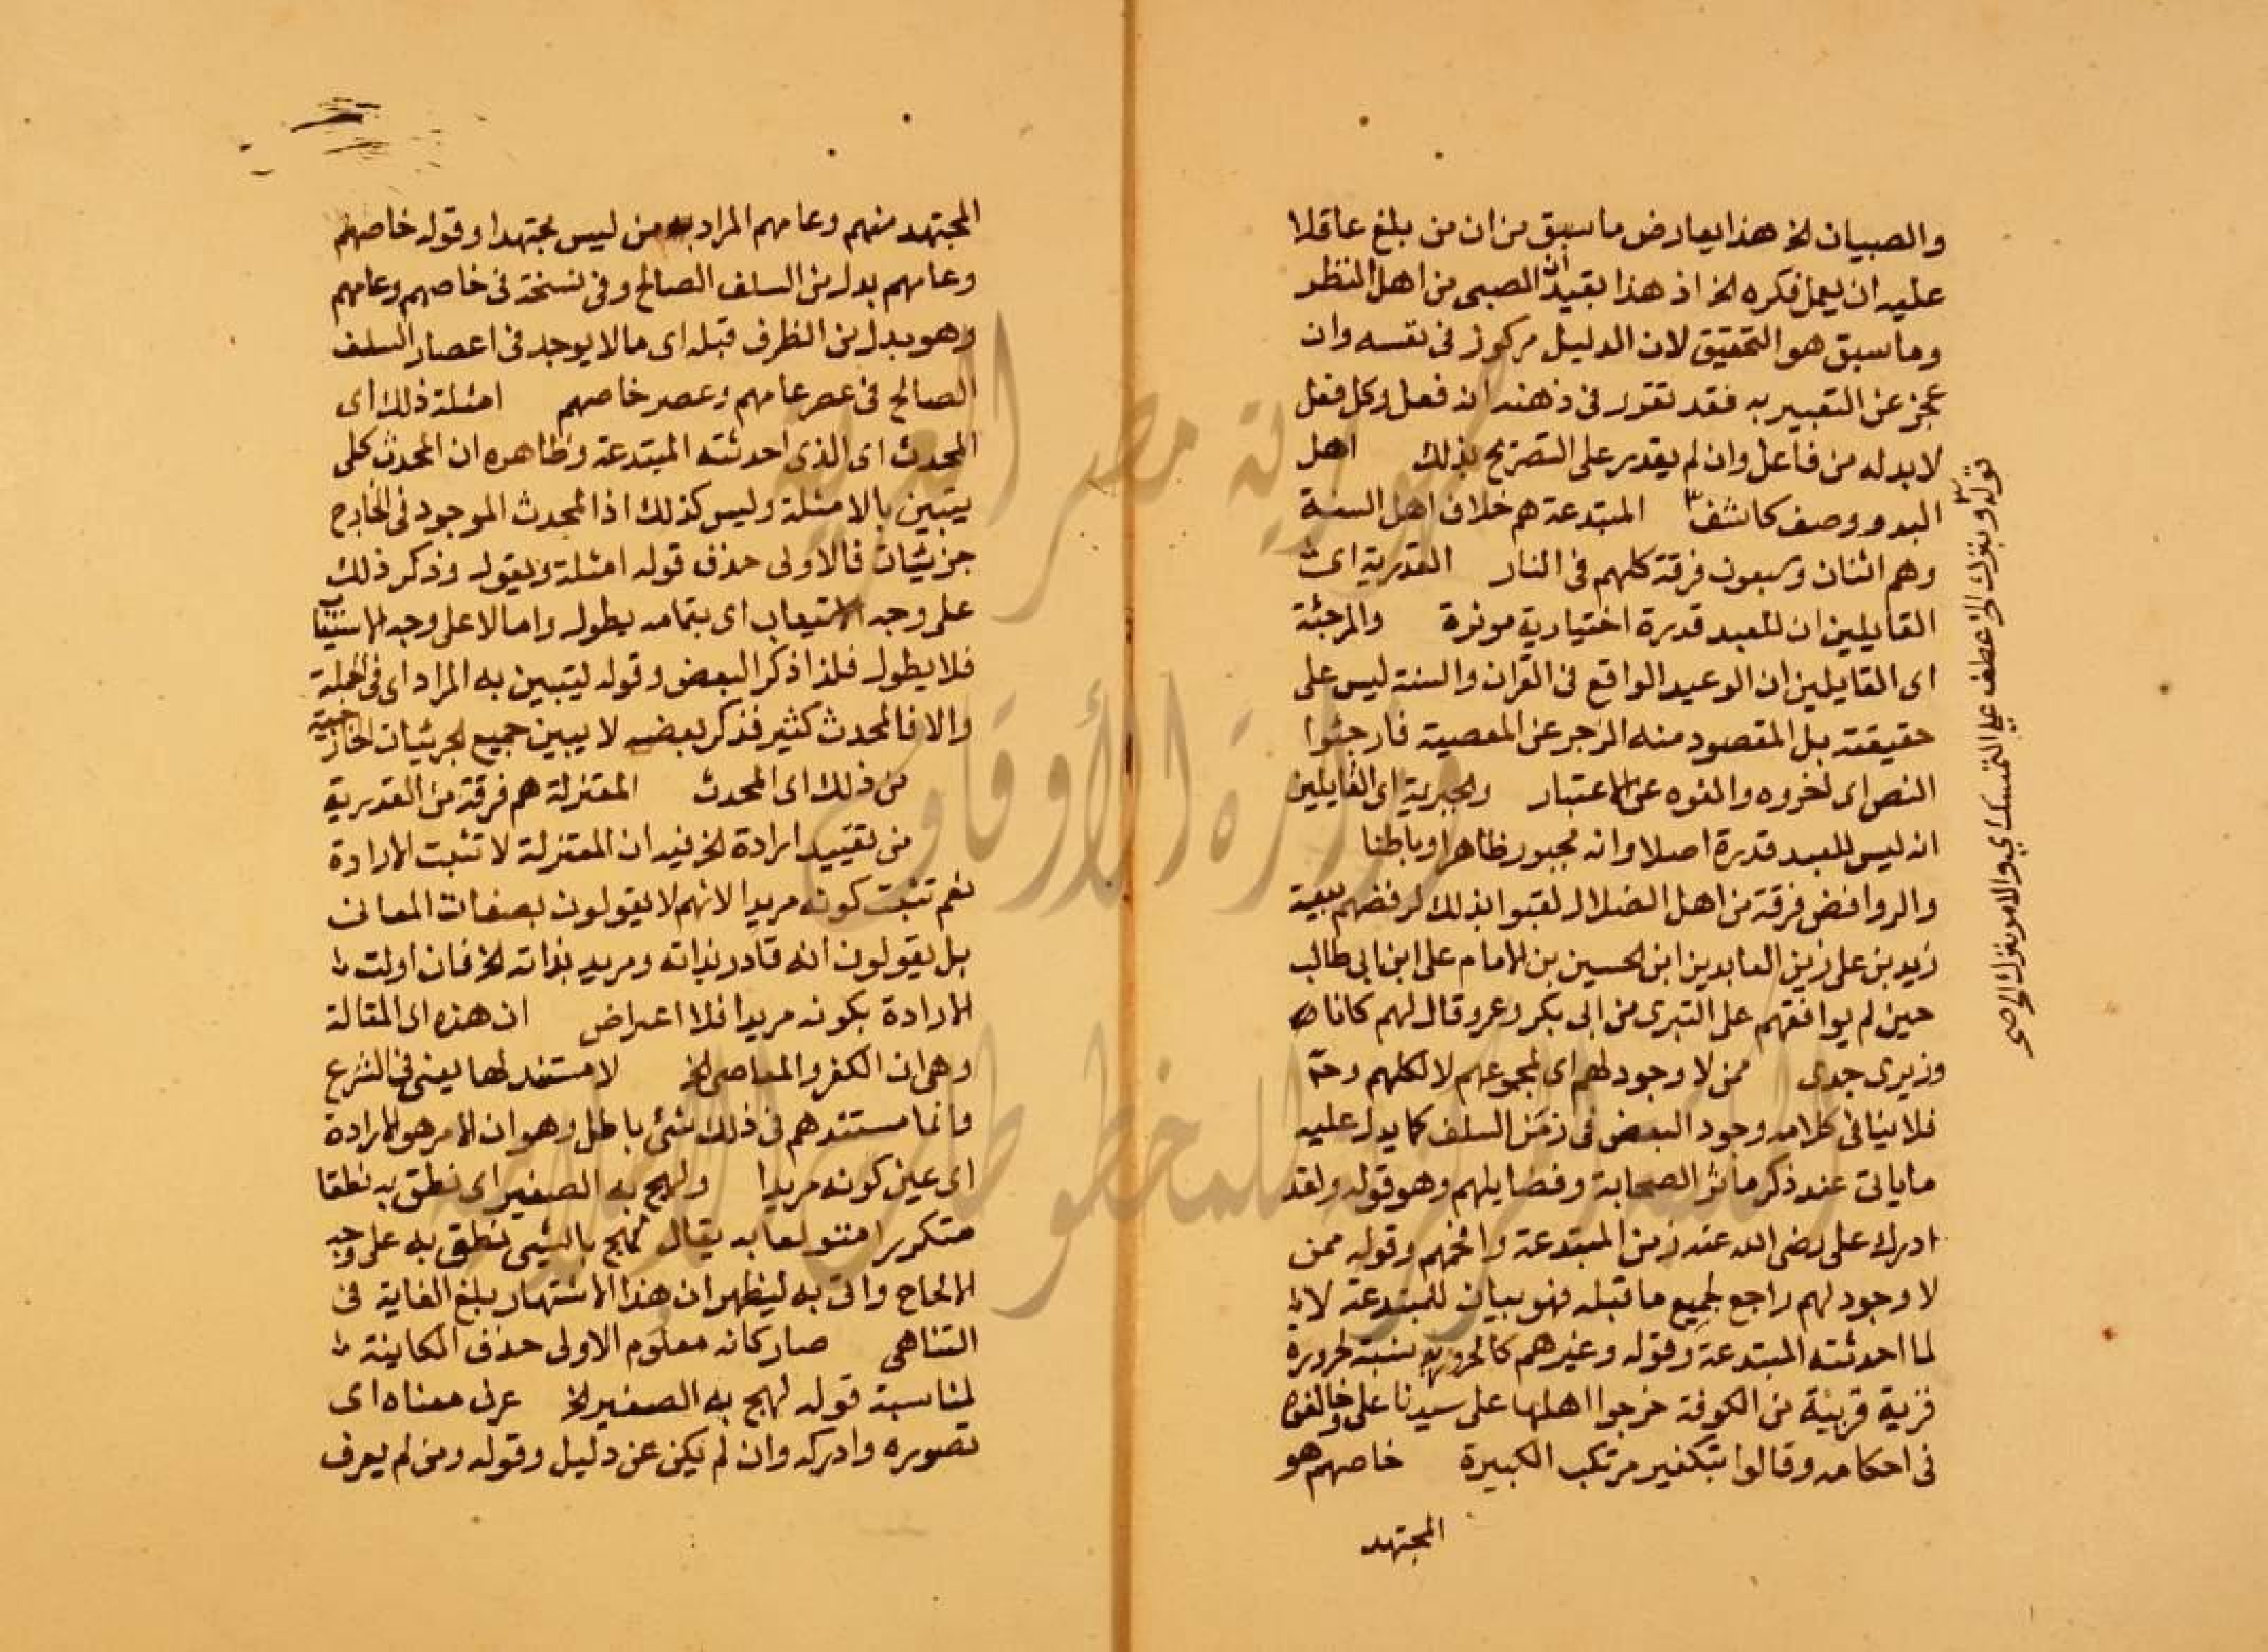 والصبيان الخ هذا يعارض ما سبق من ان من بلغ عاقلا
عليه ان يعمل فكره الخ اذ هذا يفيد ان الصبي من اهل النظر
وما سبق هو التحقيق لان الدليل مركوز في نفسه وان
عجز عن التعبير به فقد تقرر في ذهنه ان فعل وكل فعل
لا بد له من فاعل وان لم يقدر على التصريح بذلك اهل
البدو وصف كاشف المبتدعة هم خلاف اهل السنة
وهم اثنان وسبعون فرقة كلهم في النار القدرية اى
القايلين ان للعبد قدرة اختيارية موثرة والمرجئة
اى القايلين ان الوعيد الواقع في القران والسنة ليس على
حقيقته بل المقصود منه الزجر عن المعصية فارجئوا
النص اى اخروه والغوه عن الاعتبار والجبرية اى القايلين
ان ليس للعبد قدرة اصلا وانه مجبور ظاهرا وباطنا
والروافض فرقة من اهل الضلال لقبوا بذلك لرفضهم بيعة
زيد بن علي زين العابدين ابن الحسين بن الامام علي ابن ابي طالب
حين لم يوافقهم على التبري من ابى بكر وعمر وقال لهم كانا
وزيرى جدى ممن لا وجود لهم اى لمجموعهم لا لكلهم وح
فلا ينافي كلامه وجود البعض في زمن السلف كما يدل عليه
ما ياتى عند ذكر مأثر الصحابة وفضايلهم وهو قوله ولقد
ادرك على رضى الله عنه زمن المبتدعة وافحمهم وقوله ممن
لا وجود لهم راجع لجميع ما قبله فهو بيان للمبتدعة لا
لما احدثته المبتدعة وقوله وغيرهم كالحرورية نسبة لحرورة
قرية قريبة من الكوفة خرجوا اهلها على سيدنا على وخالفوه
في احكامه وقالوا بتكفير مرتكب الكبيرة خاصهم هو
المجتهد
قوله وبترك الخ عطف على التمسك اي والامر بترك الخ صح
المجتهد منهم وعامهم المراد به من ليس مجتهدا وقوله خاصهم
وعامهم بدل من السلف الصالح وفي نسخة في خاصهم وعامهم
وهو بدل من الظرف قبله اى ما لا يوجد في اعصار السلف
الصالح في عصر عامهم وعصر خاصهم امثلة ذلك اى
المحدث اى الذى احدثته المبتدعة وظاهره ان المحدث كلى
يتبين بالامثلة وليس كذلك اذ المحدث الموجود في الخارج
جزئيات فالاولى حذف قوله امثلة ويقول وذكر ذلك
على وجه الاستيعاب اى بتمامه يطول واما لا على وجه الاستيعاب
فلا يطول فلذا ذكر البعض وقوله ليتبين به المراد اى في الجملة
والا فالمحدث كثير فذكر بعضه لا يبين جميع الجزئيات الخارجية
من ذلك اى المحدث المعتزلة هم فرقة من القدرية
من تقييد ارادة الخ فيه ان المعتزلة لا تثبت الارادة
نعم تثبت كونه مريدا لانهم لا يقولون بصفات المعانى
بل يقولون انه قادر بذاته ومريد بذاته الخ فان اولت
الارادة بكونه مريدا فلا اعتراض ان هذه اى المقالة
وهى ان الكفر والمعاصى الخ لا مستند لها يعنى في الشرع
وانما مستندهم في ذلك شئ باطل وهو ان الامر هو الارادة
اى عين كونه مريدا ولهج به الصغير اى نطق به نطقا
متكررا لعابه يقال لهج بالشئ نطق به على وجه
الالحاح واتى به ليظهر ان هذا الاشتهار بلغ الغاية في
التناهى صار كانه معلوم الاولى حذف الكاينة
لمناسبة قوله لهج به الصغير الخ عرف معناه اى
تصوره وادركه وان لم يكن عن دليل وقوله ومن لم يعرف
جمهورية مصر العربية
وزارة الأوقاف
المكتبة المركزية للمخطوطات الإسلامية